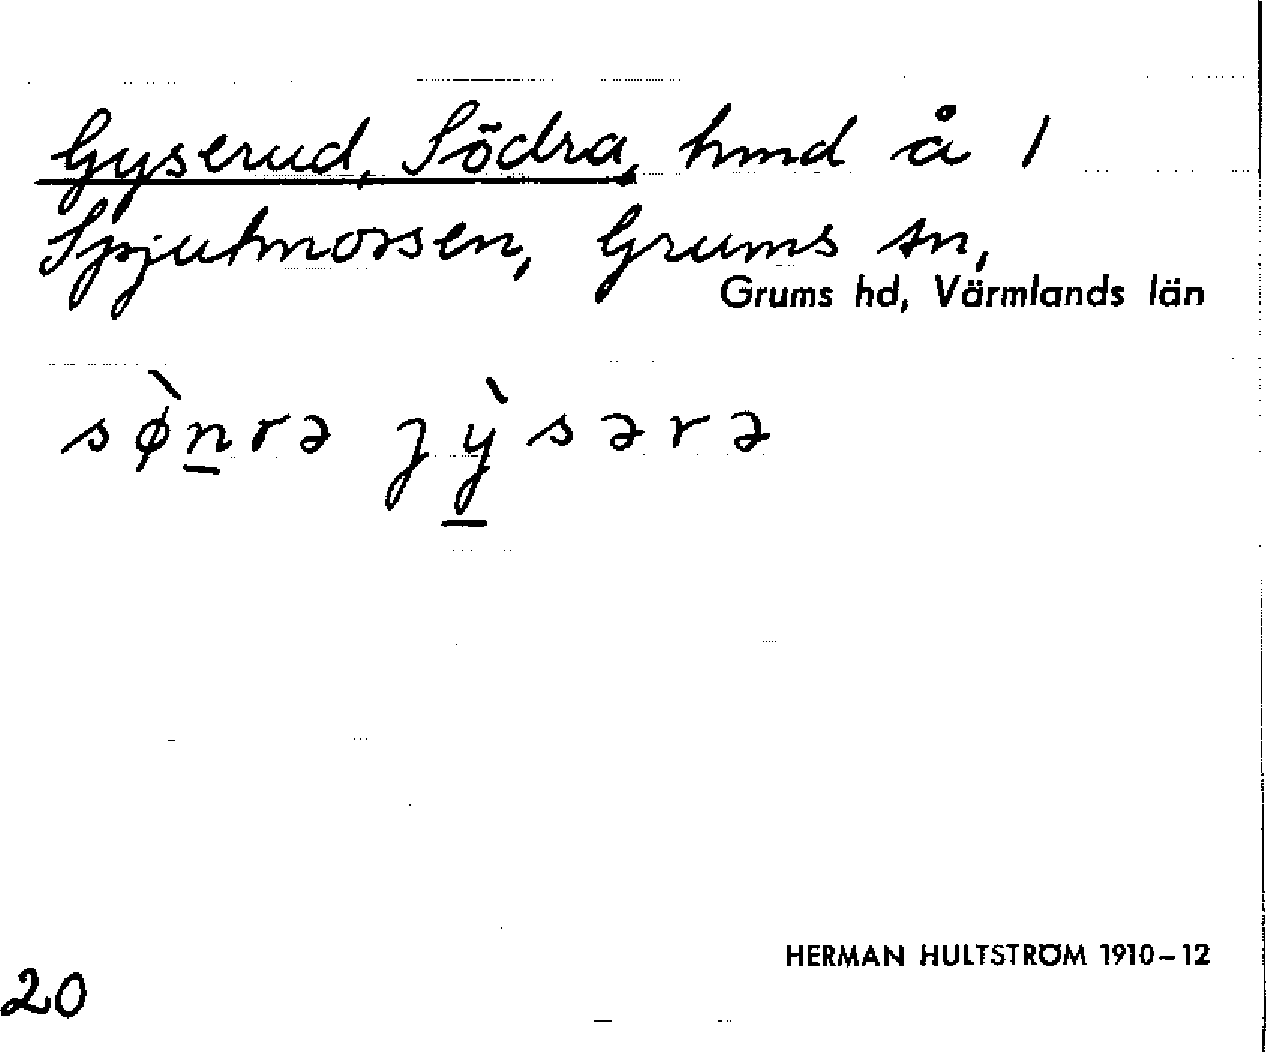 Gyserud, Södra, hmd å 1
Spjutmossen, Grums sn,
Grums hd, Värmlands län
sø̀n̲rə jỳ̲sərə
HERMAN HULTSTRÖM 1910–12
20